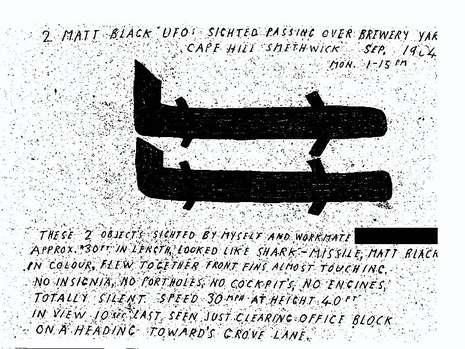 2 MATT BLACK "UFO'S SIGHTED PASSING OVER BREWERY YAR
CAPE HILL SMETHWICK SEP, 1964
MON. 1-15 PM
THESE 2 OBJECTS SIGHTED BY MYSELF AND WORKMATE
APPROX. "30FT IN LENGTH," LOOKED LIKE SHARK-MISSILE, MATT BLACK
IN COLOUR, FLEW TOGETHER FRONT FINS ALMOST TOUCHING.
NO INSIGNIA, NO PORTHOLES, NO COCKPITS, NO ENGINES,
TOTALLY SILENT. SPEED 30 MPH AT HEIGHT 40 FT
IN VIEW 10 SEC, LAST SEEN JUST CLEARING OFFICE BLOCK
ON A HEADING TOWARD'S GROVE LANE.